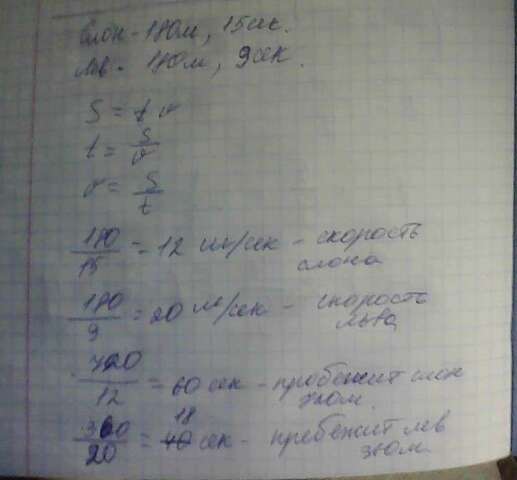 Слон - 180м, 15сек.
Лев - 180м, 9сек.
S = t v
t = S/v
v = S/t
180/15 = 12 м/сек - скорость
слона
180/9 = 20 м/сек - скорость
льва
720/12 = 60 сек - пробежит слон
360/20 = 18 сек - пребежит лев